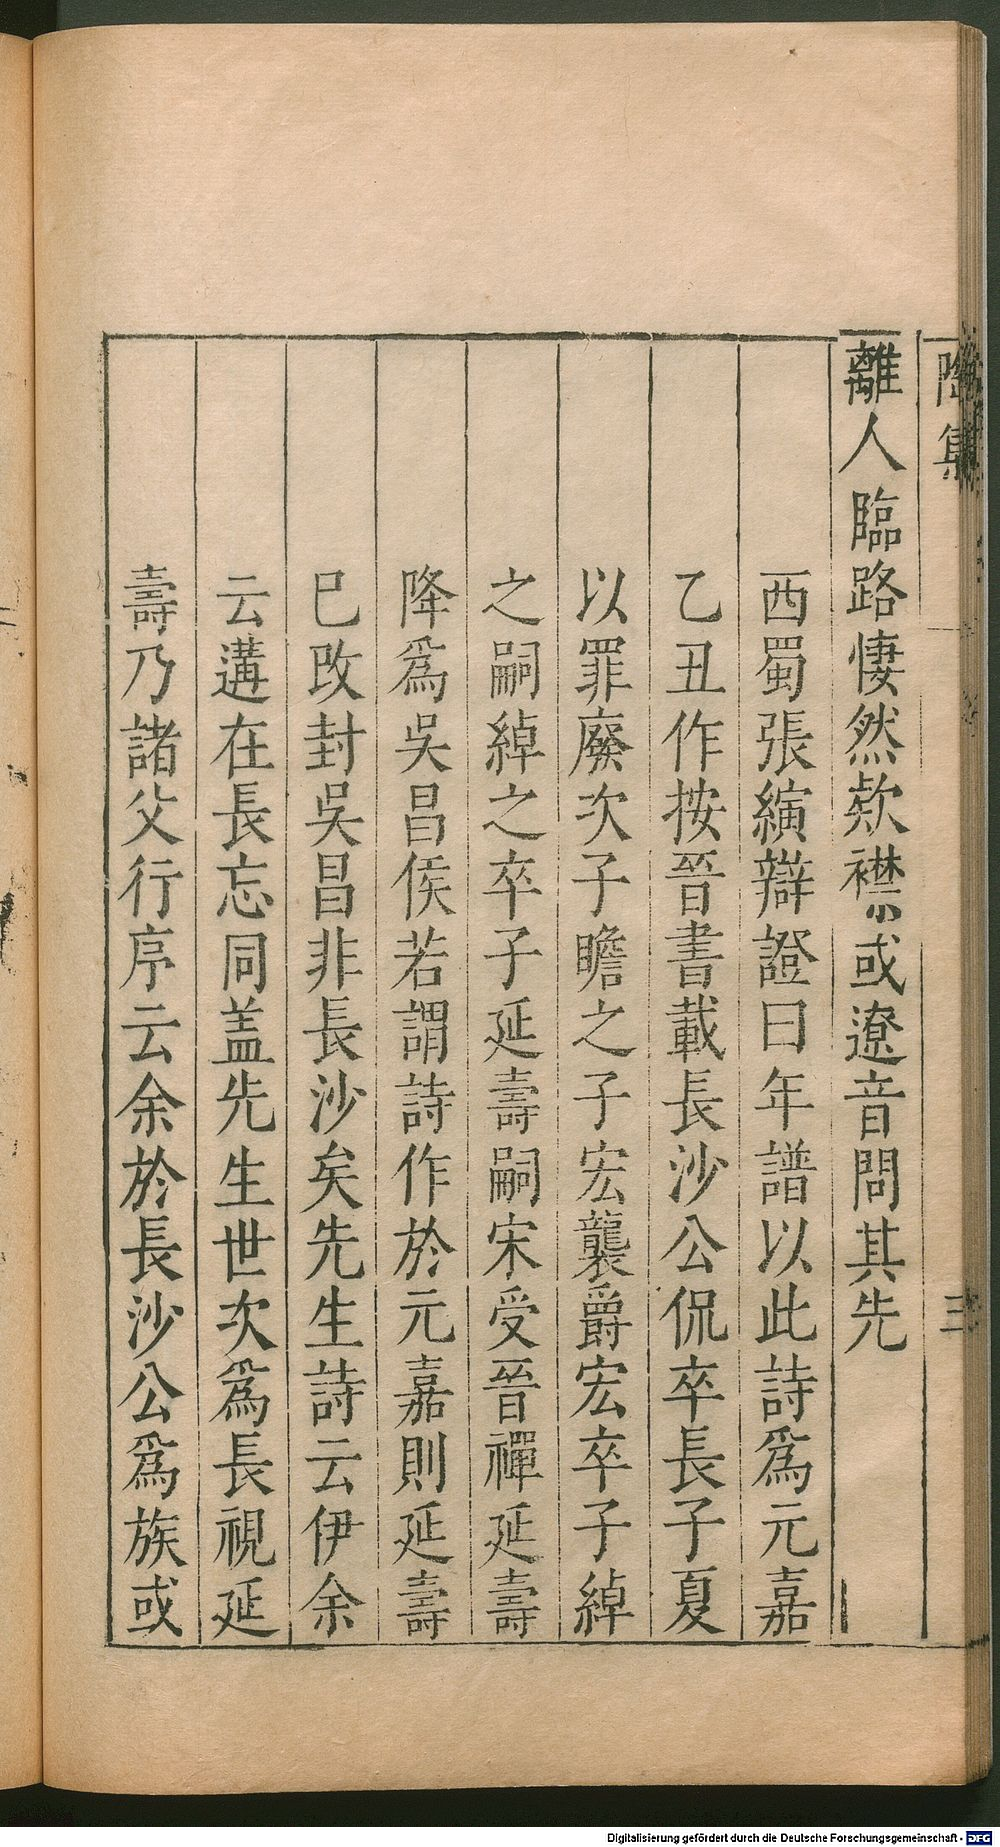 陶集
三
離人臨路悽然欵襟或遼音問其先
西蜀張縯辯證曰年譜以此詩爲元嘉
乙丑作按晉書載長沙公侃卒長子夏
以罪廢次子瞻之子宏襲爵宏卒子綽
之嗣綽之卒子延壽嗣宋受晉禪延壽
降爲吳昌侯若謂詩作於元嘉則延壽
巳改封吳昌非長沙矣先生詩云伊余
云遘在長忘同盖先生世次爲長視延
壽乃諸父行序云余於長沙公爲族或
Digitalisierung gefördert durch die Deutsche Forschungsgemeinschaft - DFG